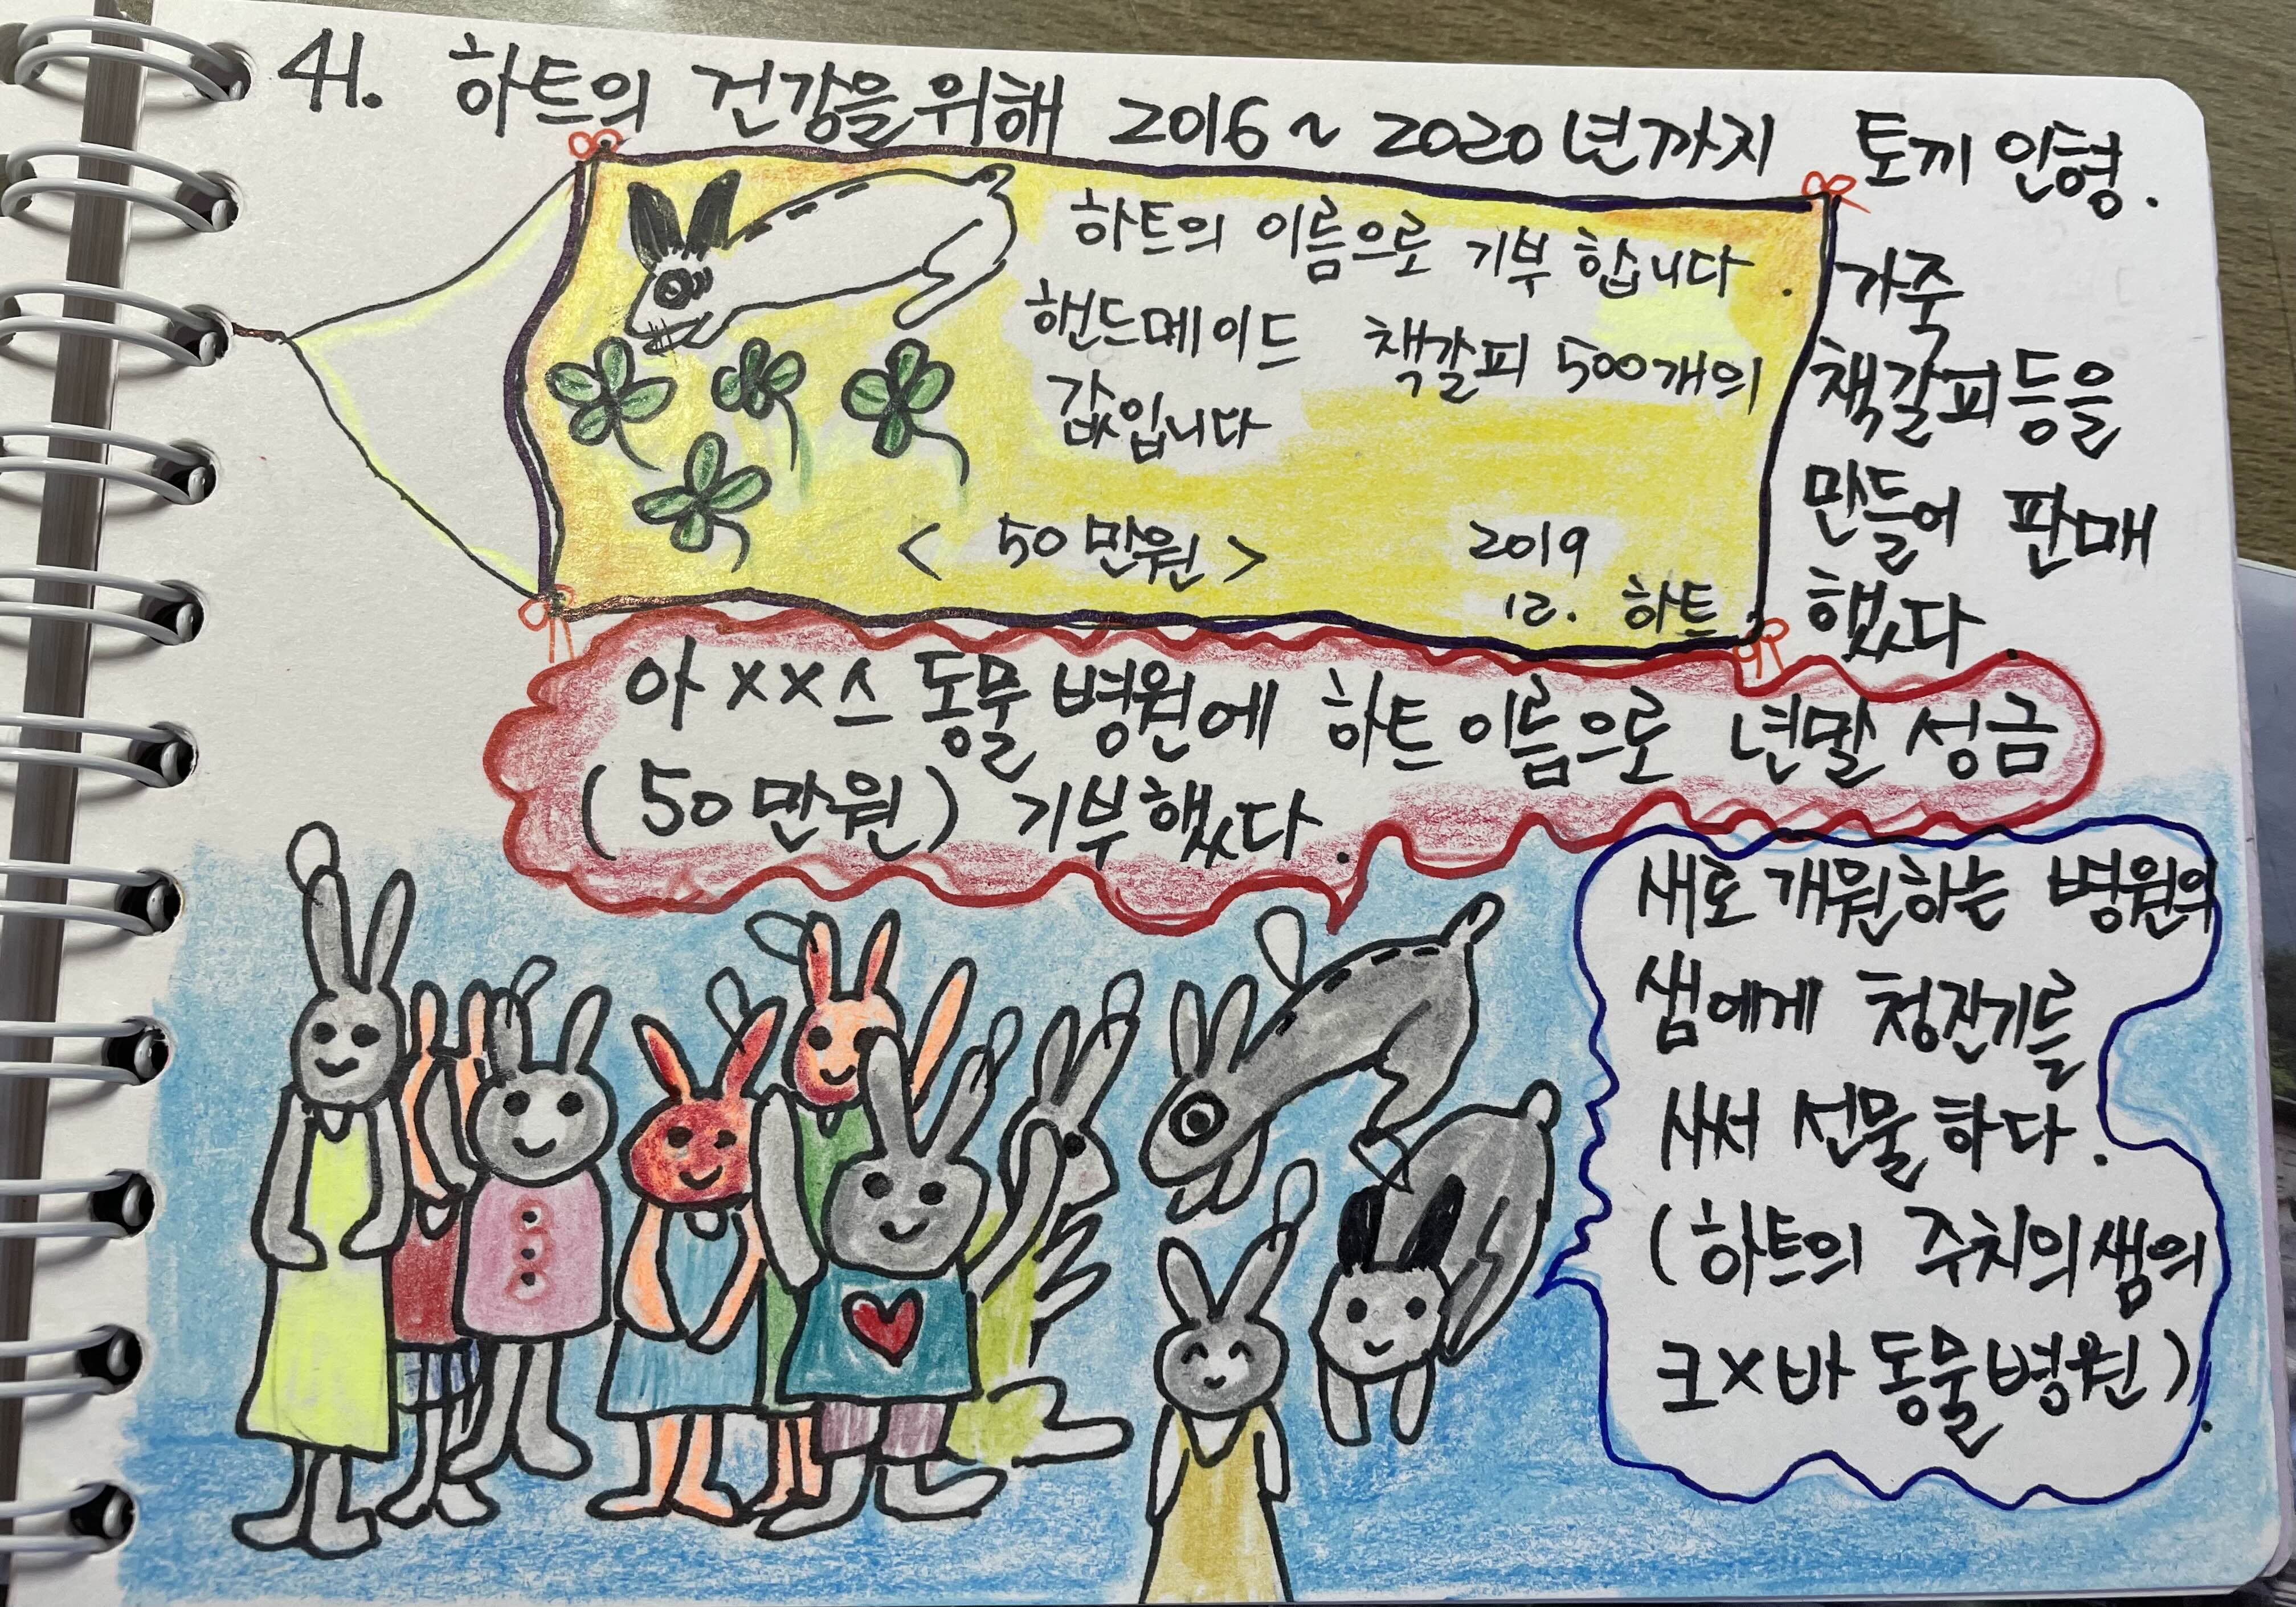 41. 하트의 건강을위해 2016 ~ 2020년까지 토끼 인형.
가죽
책갈피등을
만들어 판매
했다.
하트의 이름으로 기부 합니다.
핸드메이드 책갈피 500개의
값입니다
< 50만원 > 2019
12. 하트
아xx스 동물병원에 하트 이름으로 년말 성금
(50만원) 기부했다.
새로 개원하는 병원의
샘에게 청진기를
사써 선물하다.
(하트의 주치의샘의
크x바 동물병원).